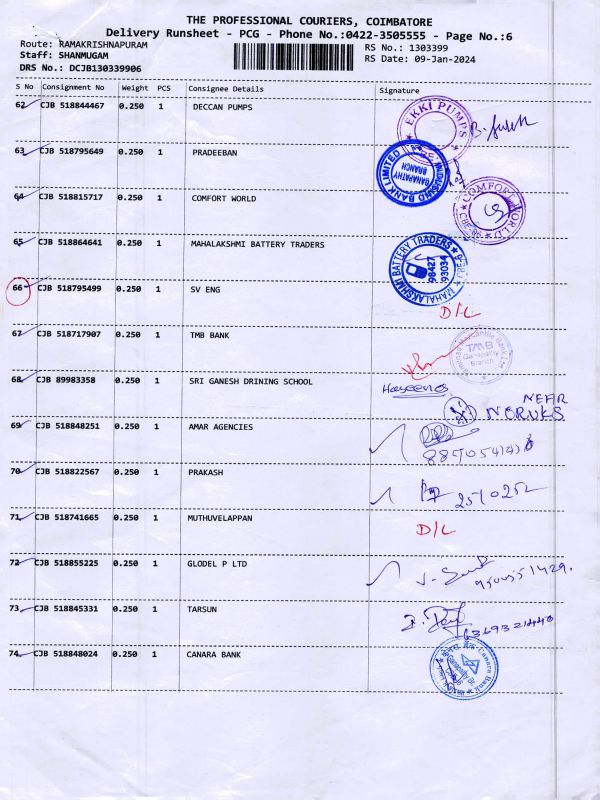 THE PROFESSIONAL COURIERS, COIMBATORE
Delivery Runsheet - PCG - Phone No.:0422-3505555 - Page No.:6
Route: RAMAKRISHNAPURAM RS No.: 1303399
Staff: SHANMUGAM RS Date: 09-Jan-2024
DRS No.: DCJB130339906
S No Consignment No Weight PCS Consignee Details Signature
62 CJB 518844467 0.250 1 DECCAN PUMPS
EKKI PUMPS
63 CJB 518795649 0.250 1 PRADEEBAN
INDUSIND BANK LIMITED GANAPATHY BRANCH
64 CJB 518815717 0.250 1 COMFORT WORLD
COMFORT WORLD
65 CJB 518864641 0.250 1 MAHALAKSHMI BATTERY TRADERS
MAHALAKSHMI BATTERY TRADERS 98427 93034
66 CJB 518795499 0.250 1 SV ENG
D/L
67 CJB 518717907 0.250 1 TMB BANK
TMB Ganapathy Branch
68 CJB 89983358 0.250 1 SRI GANESH DRINING SCHOOL
NEAR
69 CJB 518848251 0.250 1 AMAR AGENCIES
70 CJB 518822567 0.250 1 PRAKASH
71 CJB 518741665 0.250 1 MUTHUVELAPPAN D/L
72 CJB 518855225 0.250 1 GLODEL P LTD
73 CJB 518845331 0.250 1 TARSUN
74 CJB 518848024 0.250 1 CANARA BANK
Canara Bank